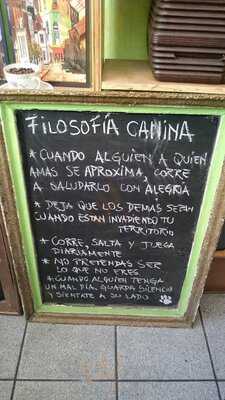 FILOSOFÍA CANINA
* CUANDO ALGUIEN A QUIEN
AMAS SE APROXIMA, CORRE
A SALUDARLO CON ALEGRÍA
* DEJA QUE LOS DEMAS SEPAN
CUANDO ESTAN INVADIENDO TU
TERRITORIO
* CORRE, SALTA Y JUEGA
DIARIAMENTE
* NO PRETENDAS SER
LO QUE NO ERES
* CUANDO ALGUIEN TENGA
UN MAL DIA, GUARDA SILENCIO
Y SIENTATE A SU LADO